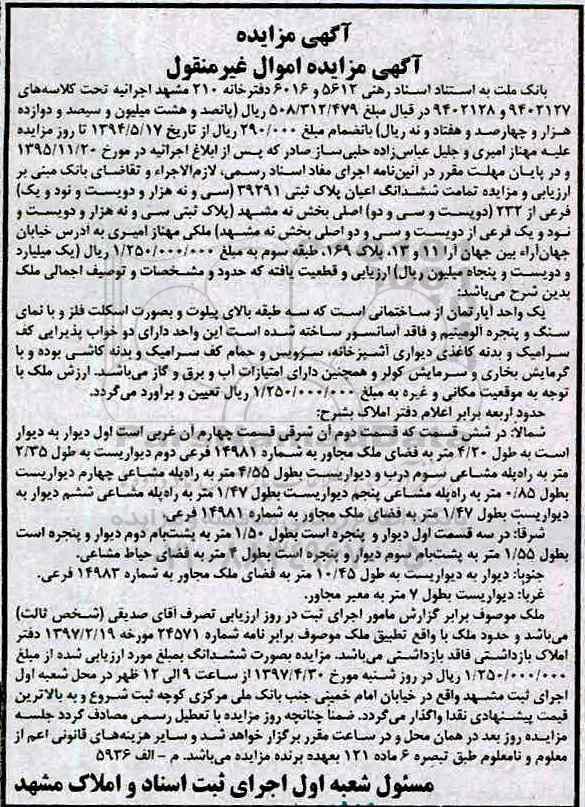 آگهی مزایده
آگهی مزایده اموال غیرمنقول
بانک ملت به استناد اسناد رهنی ۵۶۱۲ و ۶۰۱۶ دفترخانه ۲۱۰ مشهد اجرائیه تحت کلاسه‌های
۹۴۰۲۱۲۷ و ۹۴۰۲۱۲۸ در قبال مبلغ ۵۰۸/۳۱۲/۴۷۹ ریال (پانصد و هشت میلیون و سیصد و دوازده
هزار و چهارصد و هفتاد و نه ریال) بانضمام مبلغ ۲۹۰/۰۰۰ ریال از تاریخ ۱۳۹۴/۵/۱۷ تا روز مزایده
علیه مهناز امیری و جلیل عباس‌زاده حلبی‌ساز صادر که پس از ابلاغ اجرائیه در مورخ ۱۳۹۵/۱۱/۲۰
و در پایان مهلت مقرر در آئین‌نامه اجرای مفاد اسناد رسمی، لازم‌الاجراء و تقاضای بانک مبنی بر
ارزیابی و مزایده تمامت ششدانگ اعیان پلاک ثبتی ۳۹۲۹۱ (سی و نه هزار و دویست و نود و یک)
فرعی از ۲۳۲ (دویست و سی و دو) اصلی بخش نه مشهد (پلاک ثبتی سی و نه هزار و دویست و
نود و یک فرعی از دویست و سی و دو اصلی بخش نه مشهد) ملکی مهناز امیری به آدرس خیابان
جهان‌آراء بین جهان آرا ۱۱ و ۱۳، پلاک ۱۶۹، طبقه سوم به مبلغ ۱/۲۵۰/۰۰۰/۰۰۰ ریال (یک میلیارد
و دویست و پنجاه میلیون ریال) ارزیابی و قطعیت یافته که حدود و مشخصات و توصیف اجمالی ملک
بدین شرح می‌باشد:
یک واحد آپارتمان از ساختمانی است که سه طبقه بالای پیلوت و بصورت اسکلت فلز و با نمای
سنگ و پنجره آلومینیم و فاقد آسانسور ساخته شده است این واحد دارای دو خواب پذیرایی کف
سرامیک و بدنه کاغذی دیواری آشپزخانه، سرویس و حمام کف سرامیک و بدنه کاشی بوده و با
گرمایش بخاری و سرمایش کولر و همچنین دارای امتیازات آب و برق و گاز می‌باشد. ارزش ملک با
توجه به موقعیت مکانی و غیره به مبلغ ۱/۲۵۰/۰۰۰/۰۰۰ ریال تعیین و برآورد می‌گردد.
حدود اربعه برابر اعلام دفتر املاک بشرح:
شمالا: در شش قسمت که قسمت دوم آن شرقی قسمت چهارم آن غربی است اول دیوار به دیوار
است به طول ۴/۲۰ متر به فضای ملک مجاور به شماره ۱۴۹۸۱ فرعی دوم دیواریست به طول ۲/۳۵
متر به راه‌پله مشاعی سوم درب و دیواریست بطول ۴/۵۵ متر به راه‌پله مشاعی چهارم دیواریست
بطول ۰/۸۵ متر به راه‌پله مشاعی پنجم دیواریست بطول ۱/۴۷ متر به راه‌پله مشاعی ششم دیوار به
دیواریست بطول ۱/۴۷ متر به فضای ملک مجاور به شماره ۱۴۹۸۱ فرعی
شرقا: در سه قسمت اول دیوار و پنجره است بطول ۱/۵۰ متر به پشت‌بام دوم دیوار و پنجره است
بطول ۱/۵۵ متر به پشت‌بام سوم دیوار و پنجره است بطول ۴ متر به فضای حیاط مشاعی.
جنوبا: دیوار به دیواریست به طول ۱۰/۴۵ متر به فضای ملک مجاور به شماره ۱۴۹۸۳ فرعی.
غربا: دیواریست بطول ۷ متر به معبر مجاور.
ملک موصوف برابر گزارش مامور اجرای ثبت در روز ارزیابی تصرف آقای صدیقی (شخص ثالث)
می‌باشد و حدود ملک با واقع تطبیق ملک موصوف برابر نامه شماره ۲۴۵۷۱ مورخه ۱۳۹۷/۲/۱۹ دفتر
املاک بازداشتی فاقد بازداشتی می‌باشد. مزایده بصورت ششدانگ بمبلغ مورد ارزیابی شده از مبلغ
۱/۲۵۰/۰۰۰/۰۰۰ ریال در روز شنبه مورخ ۱۳۹۷/۴/۳۰ از ساعت ۹ الی ۱۲ ظهر در محل شعبه اول
اجرای ثبت مشهد واقع در خیابان امام خمینی جنب بانک ملی مرکزی کوچه ثبت شروع و به بالاترین
قیمت پیشنهادی نقدا واگذار می‌گردد. ضمنا چنانچه روز مزایده با تعطیل رسمی مصادف گردد جلسه
مزایده روز بعد در همان محل و در ساعت مقرر برگزار خواهد شد و سایر هزینه‌های قانونی اعم از
معلوم و نامعلوم طبق تبصره ۶ ماده ۱۲۱ بعهده برنده مزایده می‌باشد. م - الف ۵۹۳۶
مسئول شعبه اول اجرای ثبت اسناد و املاک مشهد